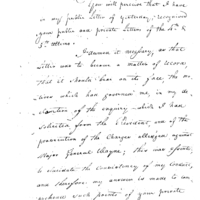 You will perceive that I have
in my public letter of yesterday, recognized
your public and private letters of the 4th &
5th Ultimo.
I deemed it necessary, as that
letter was to become a matter of record,
that it should bear on its face, the mo-
tives which had governed me, in my de-
clension of the enquiry which I had
solicited from the President, and of the
prosecution of the Charges alleged against
Major General Wayne; this was esteem'd
to vindicate the consistency of my conduct,
and therefore my answer is made to em-
brace such points of your private